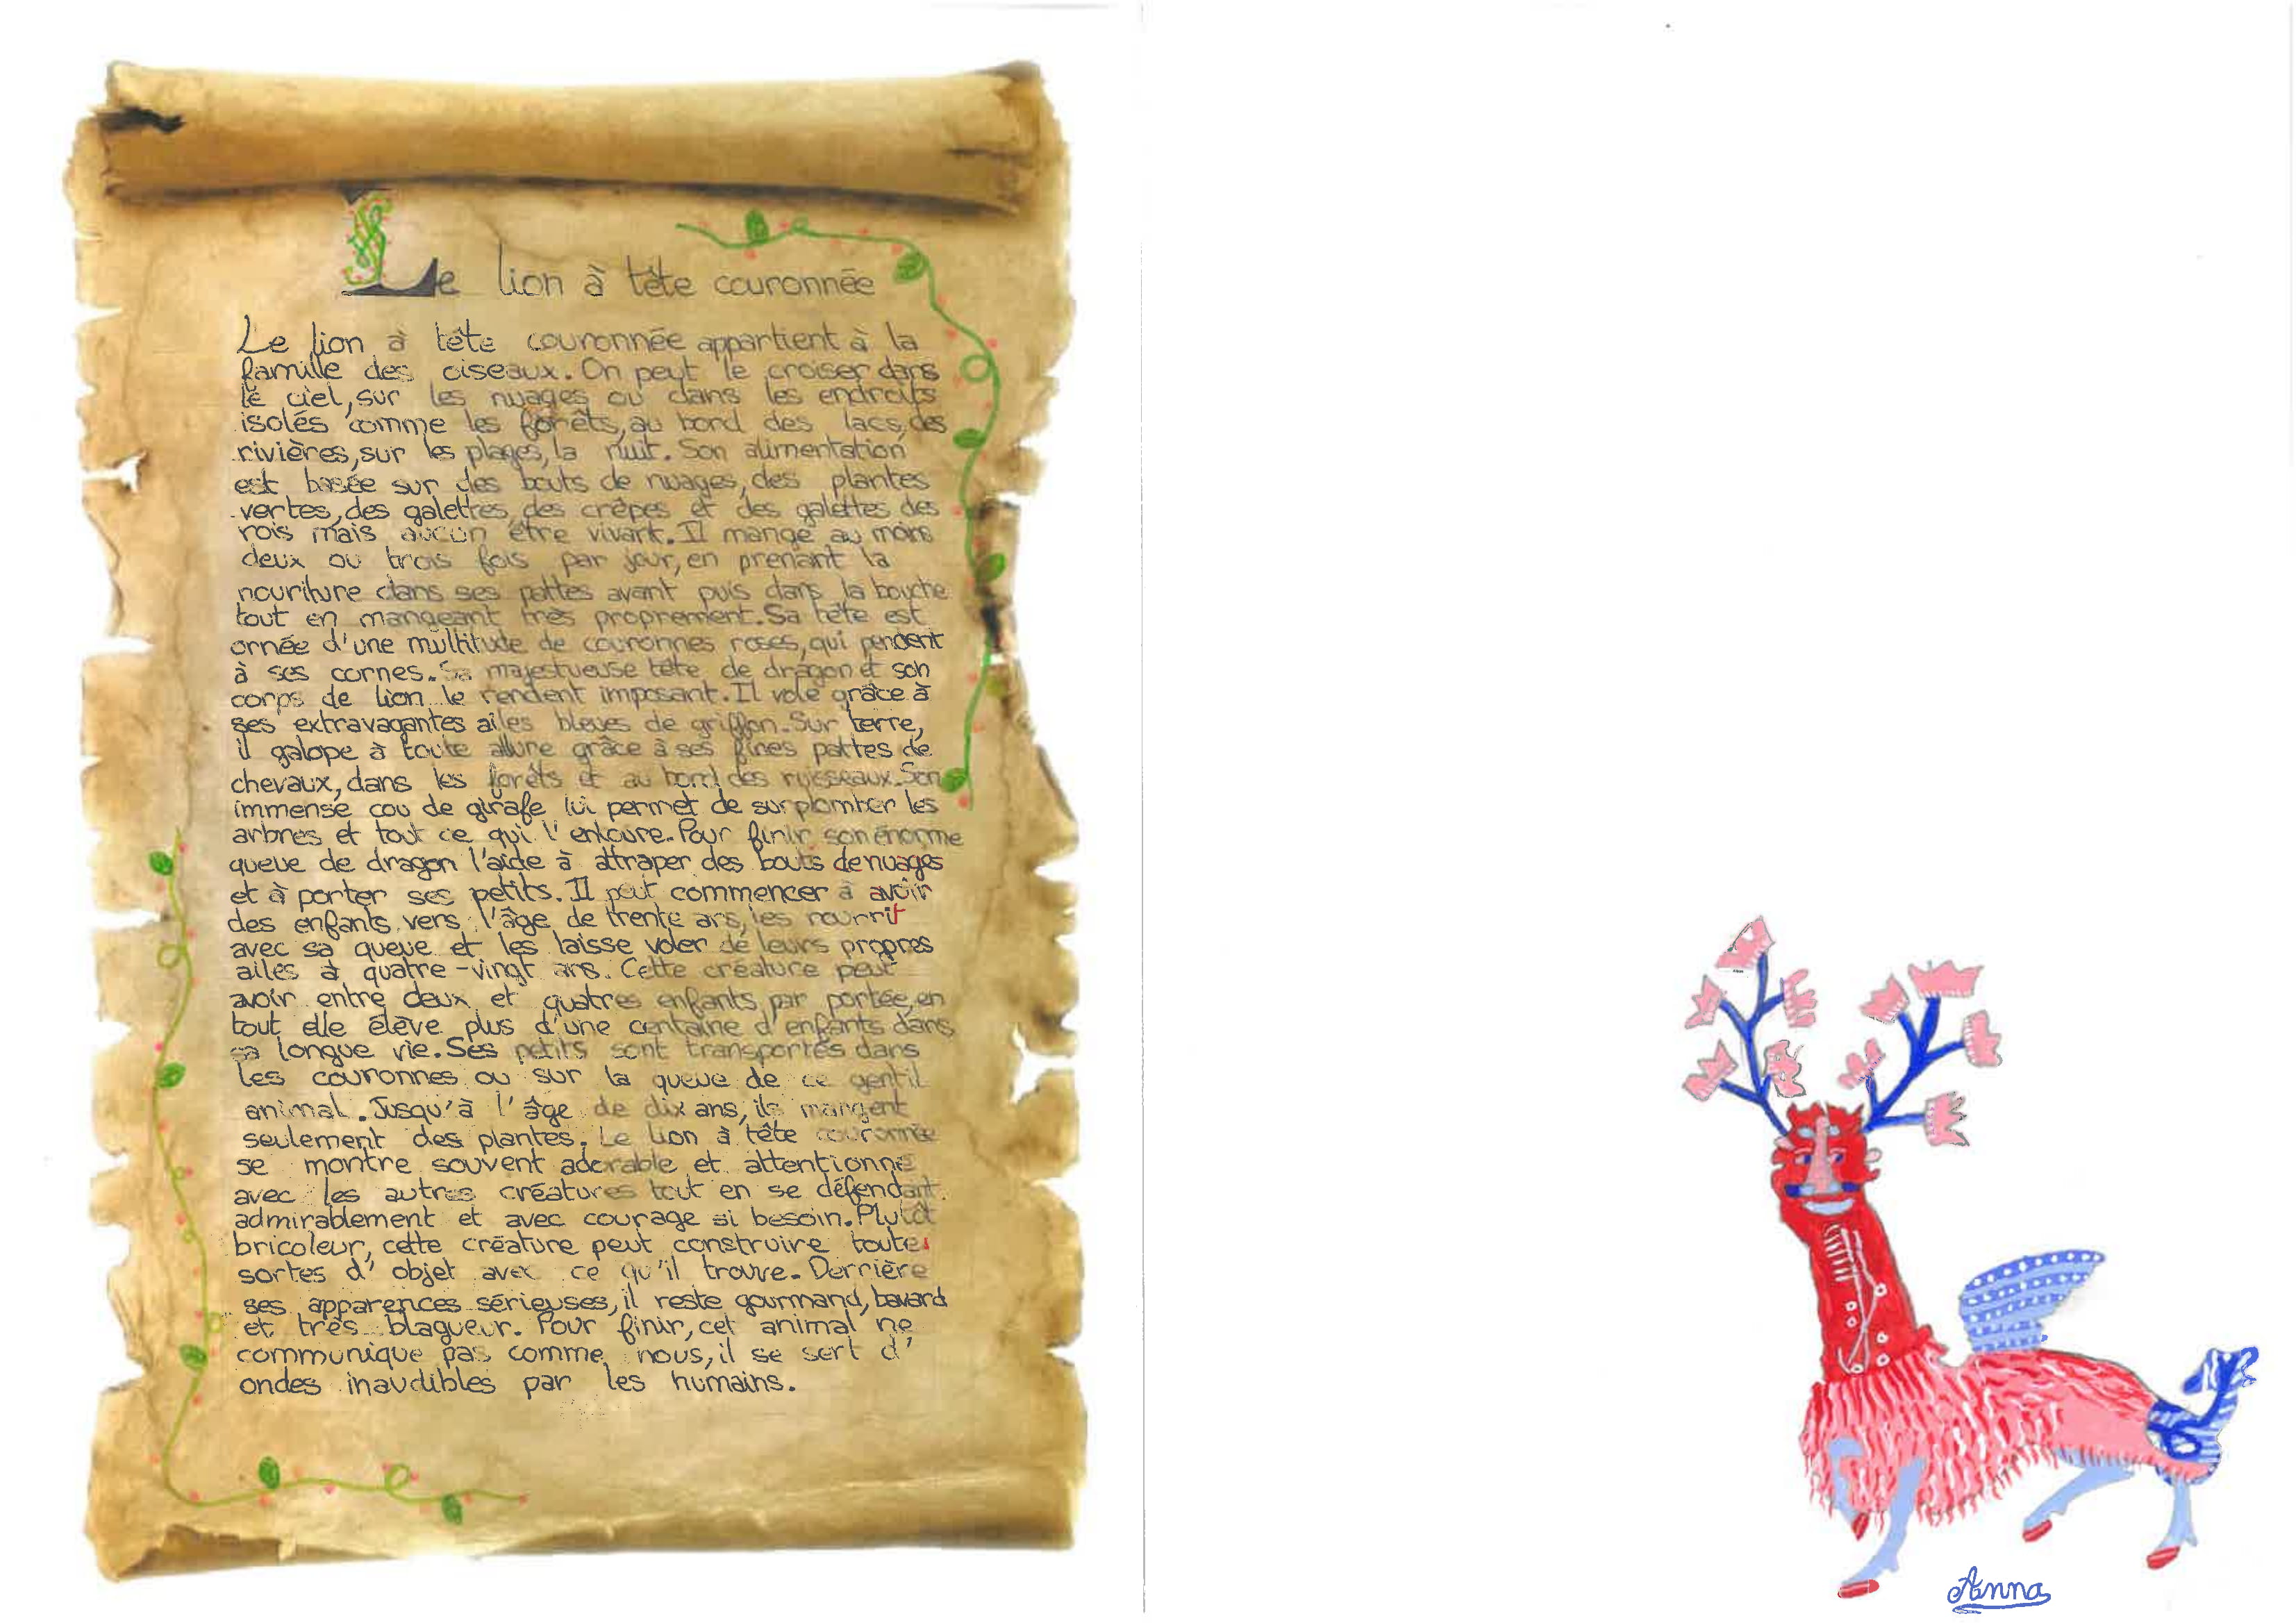 Le lion à tête couronnée
Le lion à tête couronnée appartient à la
famille des oiseaux. On peut le croiser dans
le ciel, sur les nuages ou dans les endroits
isolés comme les forêts, au bord des lacs, des
rivières, sur les plages, la nuit. Son alimentation
est basée sur des bouts de nuages, des plantes
vertes, des galettes, des crêpes et des galettes des
rois mais aucun être vivant. Il mange au moins
deux ou trois fois par jour, en prenant la
nouriture dans ses pattes avant puis dans la bouche
tout en mangeant très proprement. Sa tête est
ornée d'une multitude de couronnes roses, qui pendent
à ses cornes. Sa majestueuse tête de dragon et son
corps de lion le rendent imposant. Il vole grâce à
ses extravagantes ailes bleues de griffon. Sur terre,
il galope à toute allure grâce à ses fines pattes de
chevaux, dans les forêts et au bord des ruisseaux. Son
immense cou de girafe lui permet de surplomber les
arbres et tout ce qui l'entoure. Pour finir son énorme
queue de dragon l'aide à attraper des bouts de nuages
et à porter ses petits. Il peut commencer à avoir
des enfants vers l'âge de trente ans, les nourrit
avec sa queue et les laisse voler de leurs propres
ailes à quatre-vingt ans. Cette créature peut
avoir entre deux et quatres enfants par portée, en
tout elle élève plus d'une centaine d'enfants dans
sa longue vie. Ses petits sont transportés dans
les couronnes ou sur la queue de ce gentil
animal. Jusqu'à l'âge de dix ans, ils mangent
seulement des plantes. Le lion à tête couronnée
se montre souvent adorable et attentionné
avec les autres créatures tout en se défendant
admirablement et avec courage si besoin. Plutôt
bricoleur, cette créature peut construire toutes
sortes d'objet avec ce qu'il trouve. Derrière
ses apparences sérieuses, il reste gourmand, bavard
et très blagueur. Pour finir, cet animal ne
communique pas comme nous, il se sert d'
ondes inaudibles par les humains.
Anna